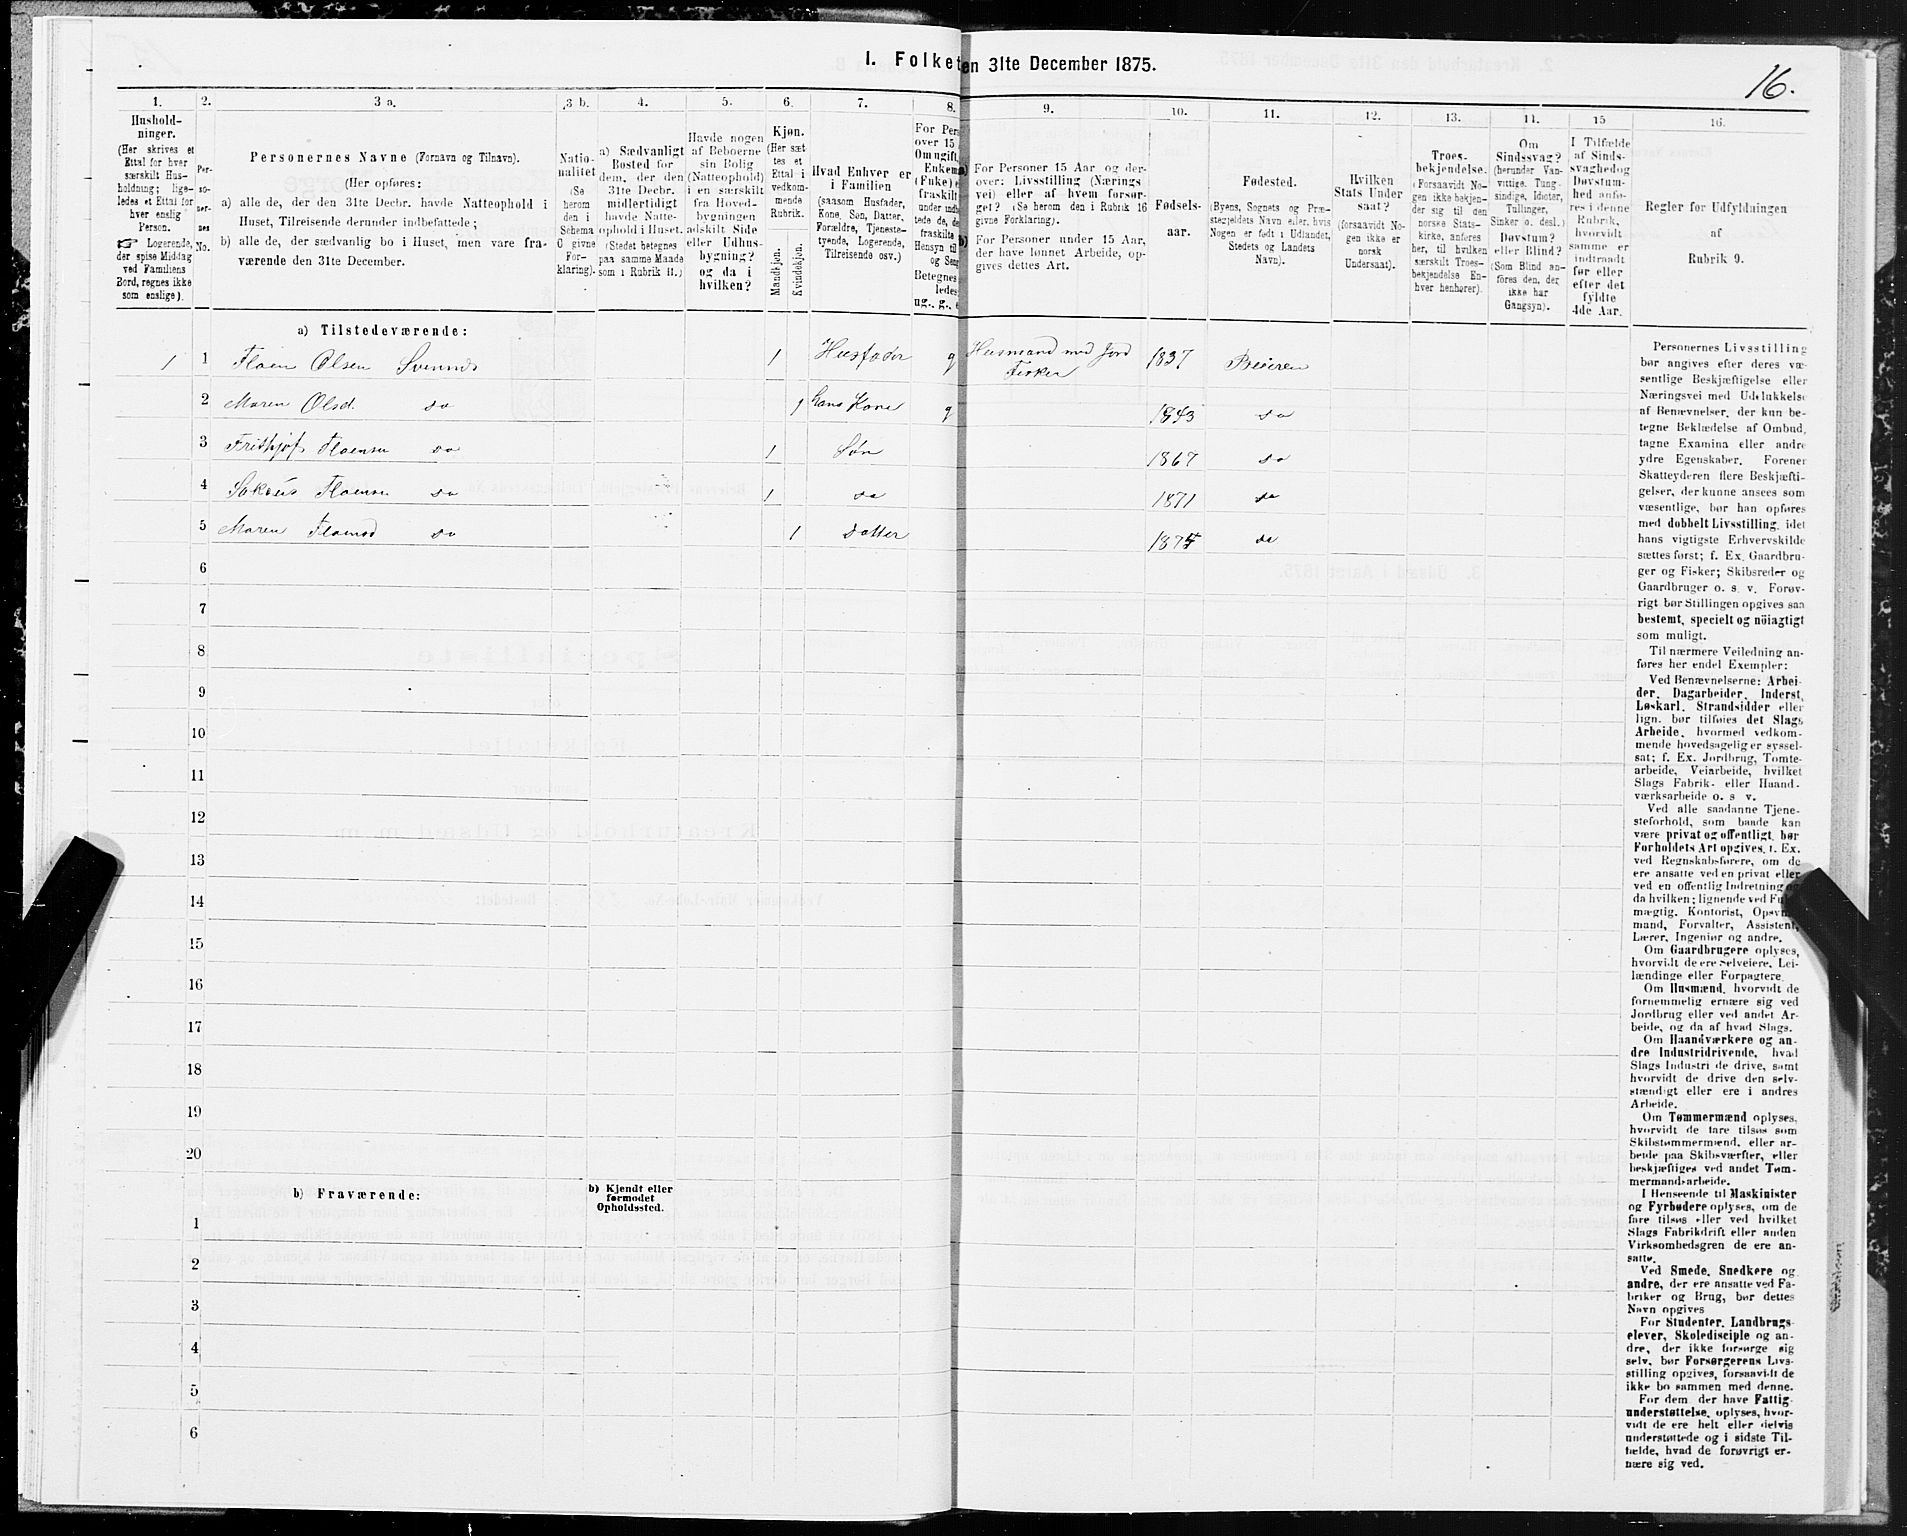 I. Folket en 31te December 1875.
16.
1. 2. 3 a. 3 b. 4. 5. 6. 7. 8. 9. 10. 11. 12. 13. 14. 15 16.
Hushold-
ninger.
(Her skrives et
Ettal for hver
særskilt Hus-
holdning; lige-
ledes et Ettal for
hver enslig
Person.
☞ Logerende,
der spise Middag
ved Familiens
Bord, regnes ikke
som enslige).
Per-
so-
ner-
nes
No.
Personernes Navne (Fornavn og Tilnavn).
(Her opføres:
a) alle de, der den 31te Decbr. havde Natteophold i
Huset, Tilreisende derunder indbefattede;
b) alle de, der sædvanlig bo i Huset, men vare fra-
værende den 31te December.
Natio-
nalitet
(Se
herom
den i
Schema
O givne
For-
klaring).
a) Sædvanligt
Bosted for
dem, der den
31te Decbr.
midlertidigt
havde Natte-
ophold i Huset.
(Stedet betegnes
paa samme Maade
som i Rubrik 11.)
Havde nogen
af Beboerne
sin Bolig
(Natteophold)
i en særskilt
fra Hoved-
bygningen
adskilt Side
eller Udhus-
bygning?
og da i
hvilken?
Kjøn.
(Her sæt
tes et
Ettal i
vedkom-
mende
Rubrik.
Mandkjøn.
Kvindekjøn.
Hvad Enhver er
i Familien
(saasom Husfader,
Kone, Søn, Datter,
Forældre, Tjeneste-
tyende, Logerende,
Tilreisende osv.)
For Pers
over 15
Om ugift,
Enkeman
(Fuke) e
fraskilt
under indb
tede de, de
fraskilte
Hensyn til
og Seng
Betegnes
ledes
ug., g., e
a) For Personer 15 Aar og der-
over: Livsstilling (Nærings
vei) eller af hvem forsør-
get? (Se herom den i Rubrik 16
givne Forklaring).
b) For Personer under 15 Aar,
der have lønnet Arbeide, op-
gives dettes Art.
Fødsels-
aar.
Fødested.
(Byens, Sognets og Præ-
stegjeldets Navn eller, hvis
Nogen er født i Udlandet,
Stedets og Landets
Navn).
Hvilken
Stats Under
saat?
(forsaavidt No-
gen ikke er
norsk
Undersaat).
Troes-
bekjendelse.
(Forsaavidt No-
gen ikke bekjen-
der sig til den
norske Stats-
kirke, anføres
her, til hvilken
særskilt Troes-
bekjendelse En-
hver henhører).
Om
Sindssvag?
(herunder Van-
vittige, Tung-
sindige, Idioter,
Tullinger,
Sinker o. desl.)
Døvstum?
eller Blind?
(Som Blind an-
føres den, der
ikke har
Gangsyn).
I Tilfælde
af Sinds-
svaghed og
Døvstum-
hed anfø-
res i denne
Rubrik,
hvorvidt
samme er
indtraadt
før eller
efter det
fyldte
4de Aar.
Regler for Udfyldningen
af
Rubrik 9.
a) Tilstedeværende:
1 1 Floen Olsen Svennes 1 Husfader g Husmand med Jord Fisker 1837 Beieren
2 Maren Olsd. do 1 hans Kone g 1843 do
3 Frithjof Floensen do 1 Søn 1867 do
4 Floensen do 1 do 1871 do
5 Maren Floensd do 1 Datter 1875 do
6
7
8
9
10
11
12
13
14
15
16
17
18
19
20
b) Fraværende:
b) Kjendt eller
formodet
Opholdssted.
1
2
3
4
5
6
Personernes Livsstilling
bør angives efter deres væ-
sentlige Beskjæftigelse eller
Næringsvei med Udelukkelse
af Benævnelser, der kun be-
tegne Beklædelse af Ombud,
tagne Examina eller andre
ydre Egenskaber. Forener
Skatteyderen flere Beskjæfti-
gelser, der kunne ansees som
væsentlige, bør han opføres
med dobbelt Livsstilling, idet
hans vigtigste Erhvervskilde
sættes først; f. Ex. Gaardbru-
ger og Fisker; Skibsreder og
Gaardbruger o. s. v. Forøv-
rigt bør Stillingen opgives saa
bestemt, specielt og nøiagtigt
som muligt.
Til nærmere Veiledning an-
føres her endel Exempler:
Ved Benævnelserne: Arbei-
der, Dagarbeider, Inderst,
Løskarl, Strandsidder eller
lign. bør tilføies det Slags
Arbeide, hvormed vedkom-
mende hovedsagelig er syssel-
sat; f. Ex. Jordbrug, Tomte-
arbeide, Veiarbeide, hvilket
Slags Fabrik- eller Haand-
værksarbeide o. s v.
Ved alle saadanne Tjene-
steforhold, som baade kan
være privat og offentligt, bør
Forholdets Art opgives, f. Ex.
ved Regnskabsførere, om de
ere ansatte ved en privat eller
ved en offentlig Indretning og
da hvilken; lignende ved Ful
mægtig, Kontorist, Opsyns
mand, Forvalter, Assistent,
Lærer, Ingeniør og andre.
Om Gaardbrugere oplyses,
hvorvidt de ere Selveiere, Lei-
lændinge eller Forpagtere.
Om Husmænd, hvorvidt de
fornemmelig ernære sig ved
Jordbrug eller ved andet Ar-
beide, og da af hvad Slags.
Om Haandværkere og an-
dre Industridrivende, hvad
Slags Industri de drive, samt
hvorvidt de drive den selv-
stændigt eller ere i andres
Arbeide.
Om Tømmermænd oplyses,
hvorvidt de fare tilsøs som
Skibstømmermænd, eller ar-
beide paa Skibsværfter, eller
beskjæftiges ved andet Tøm-
mermandsarbeide.
I Henseende til Maskinister
og Fyrbødere oplyses, om de
fare tilsøs eller ved hvilket
Slags Fabrikdrift eller anden
Virksomhedsgren de ere an-
satte.
Ved Smede, Snedkere og
andre, der ere ansatte ved Fa-
briker og Brug, bør dettes
Navn opgives
For Studenter, Landbrugs-
elever, Skoledisciple og an-
dre, der ikke forsørge sig
selv, bør Forsørgerens Livs-
stilling opgives, forsaavidt de
ikke bo sammen med denne.
For dem, der have Fattig-
understøttelse, oplyses, hvor-
vidt de ere helt eller delvis
understøttede og i sidste Til-
fælde, hvad de forøvrigt er-
nære sig ved.